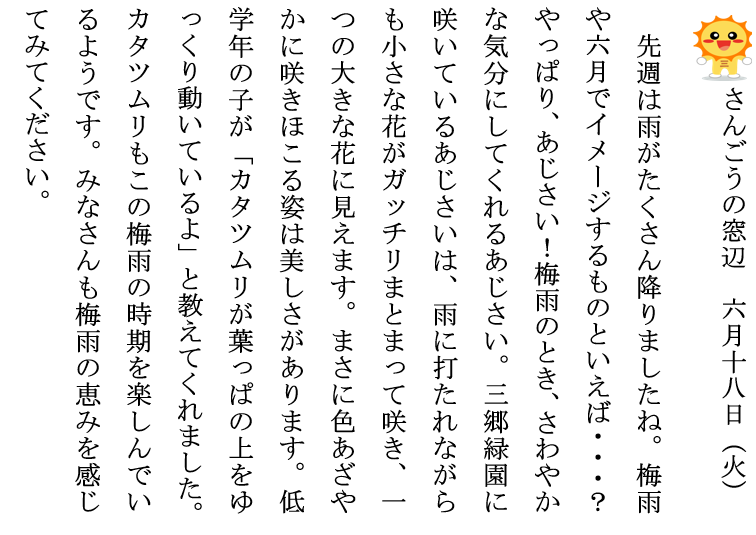 さんごうの窓辺　六月十八日（火）
　先週は雨がたくさん降りましたね。梅雨
や六月でイメージするものといえば・・・？
やっぱり、あじさい！梅雨のとき、さわやか
な気分にしてくれるあじさい。三郷緑園に
咲いているあじさいは、雨に打たれながら
も小さな花がガッチリまとまって咲き、一
つの大きな花に見えます。まさに色あざや
かに咲きほこる姿は美しさがあります。低
学年の子が「カタツムリが葉っぱの上をゆ
っくり動いているよ」と教えてくれました。
カタツムリもこの梅雨の時期を楽しんでい
るようです。みなさんも梅雨の恵みを感じ
てみてください。
三